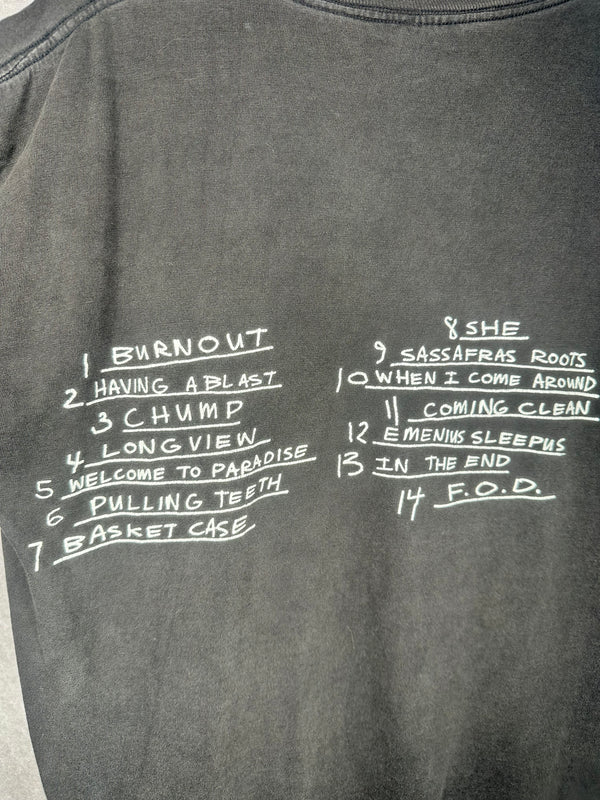 1 BURNOUT
2 HAVING A BLAST
3 CHUMP
4 LONGVIEW
5 WELCOME TO PARADISE
6 PULLING TEETH
7 BASKET CASE
8 SHE
9 SASSAFRAS ROOTS
10 WHEN I COME AROUND
11 COMING CLEAN
12 EMENIUS SLEEPUS
13 IN THE END
14 F.O.D.